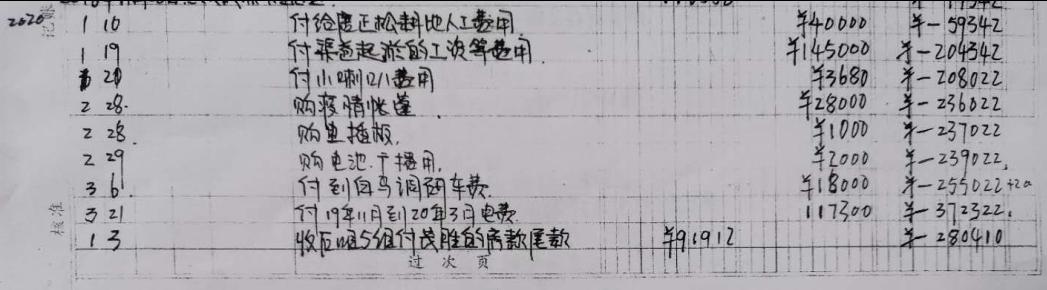 2020
1 10 付给度正松耕地人工费用 ¥40000 ¥-59342
1 19 付渠道起淤的工资等费用 ¥145000 ¥-204342
1 20 付小喇叭费用 ¥3680 ¥-208022
2 28. 购疫情帐篷 ¥28000 ¥-236022
2 28. 购电插板, ¥1000 ¥-237022
2 29 购电池广播用, ¥2000 ¥-239022,
3 6 付到白马调研车费 ¥18000 ¥-255022
3 21 付19年11月到20年3月电费 117300 ¥-372322,
1 3 收后咀5组付茂胜的房款尾款 ¥91912 ¥-280410
核准
过 次 页